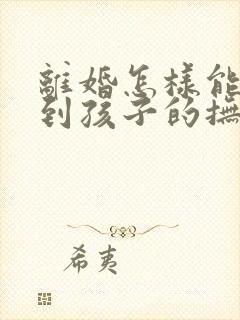 離婚怎樣能
到孩子的撫
希夷